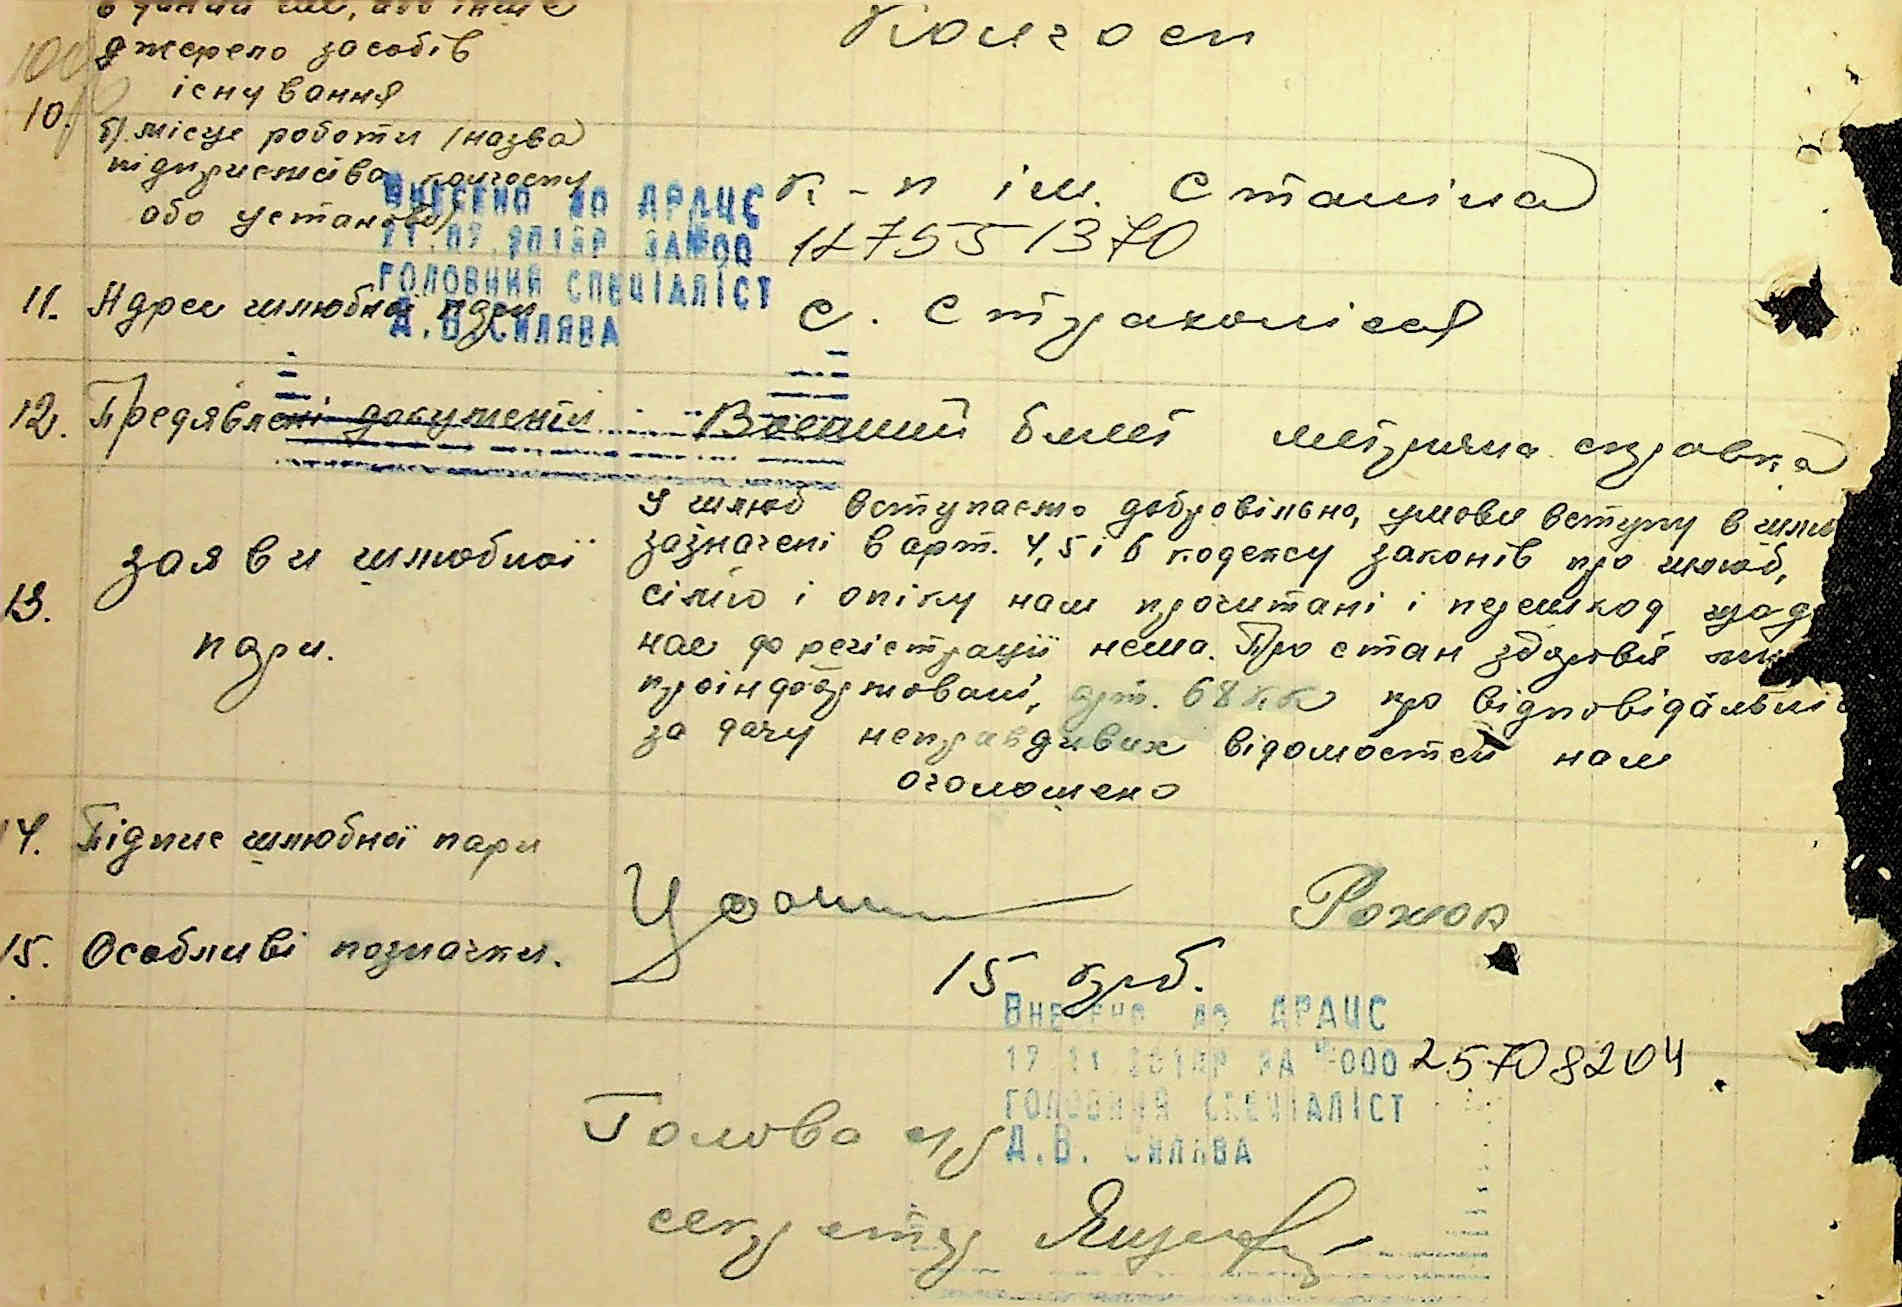 в даний час, або інше
джерело засобів
існування
Колгосп
10.
б) місце роботи /назва
підприємства, колгоспу
або установи/
к-п ім. Сталіна
Внесено до АРАЦС
ЗА №00 12755 1370
головний спеціаліст
Д.В. Силява
11. Адрес шлюбної пари
с. Страколісся
12. Предявлені документи Воєнний білєт метрична справка
13. заяви шлюбної
пари.
У шлюб вступаємо добровільно, умови вступу в шлюб
зазначені в арт. 4, 5 і 6 кодексу законів про шлюб,
сім'ю і опіку нам прочитані і перешкод щодо
нас до реєстрації нема. Про стан здоровія
проінформовані, арт. 68 КК про відповідальніс
за дачу неправдивих відомостей нам
оголошено
14. Підпис шлюбної пари
15. Особливі позначки.
15 крб.
Внесено до АРАЦС
ЗА №000 25708204
головний спеціаліст
Д.В. Силява
Голова с/р
секретр